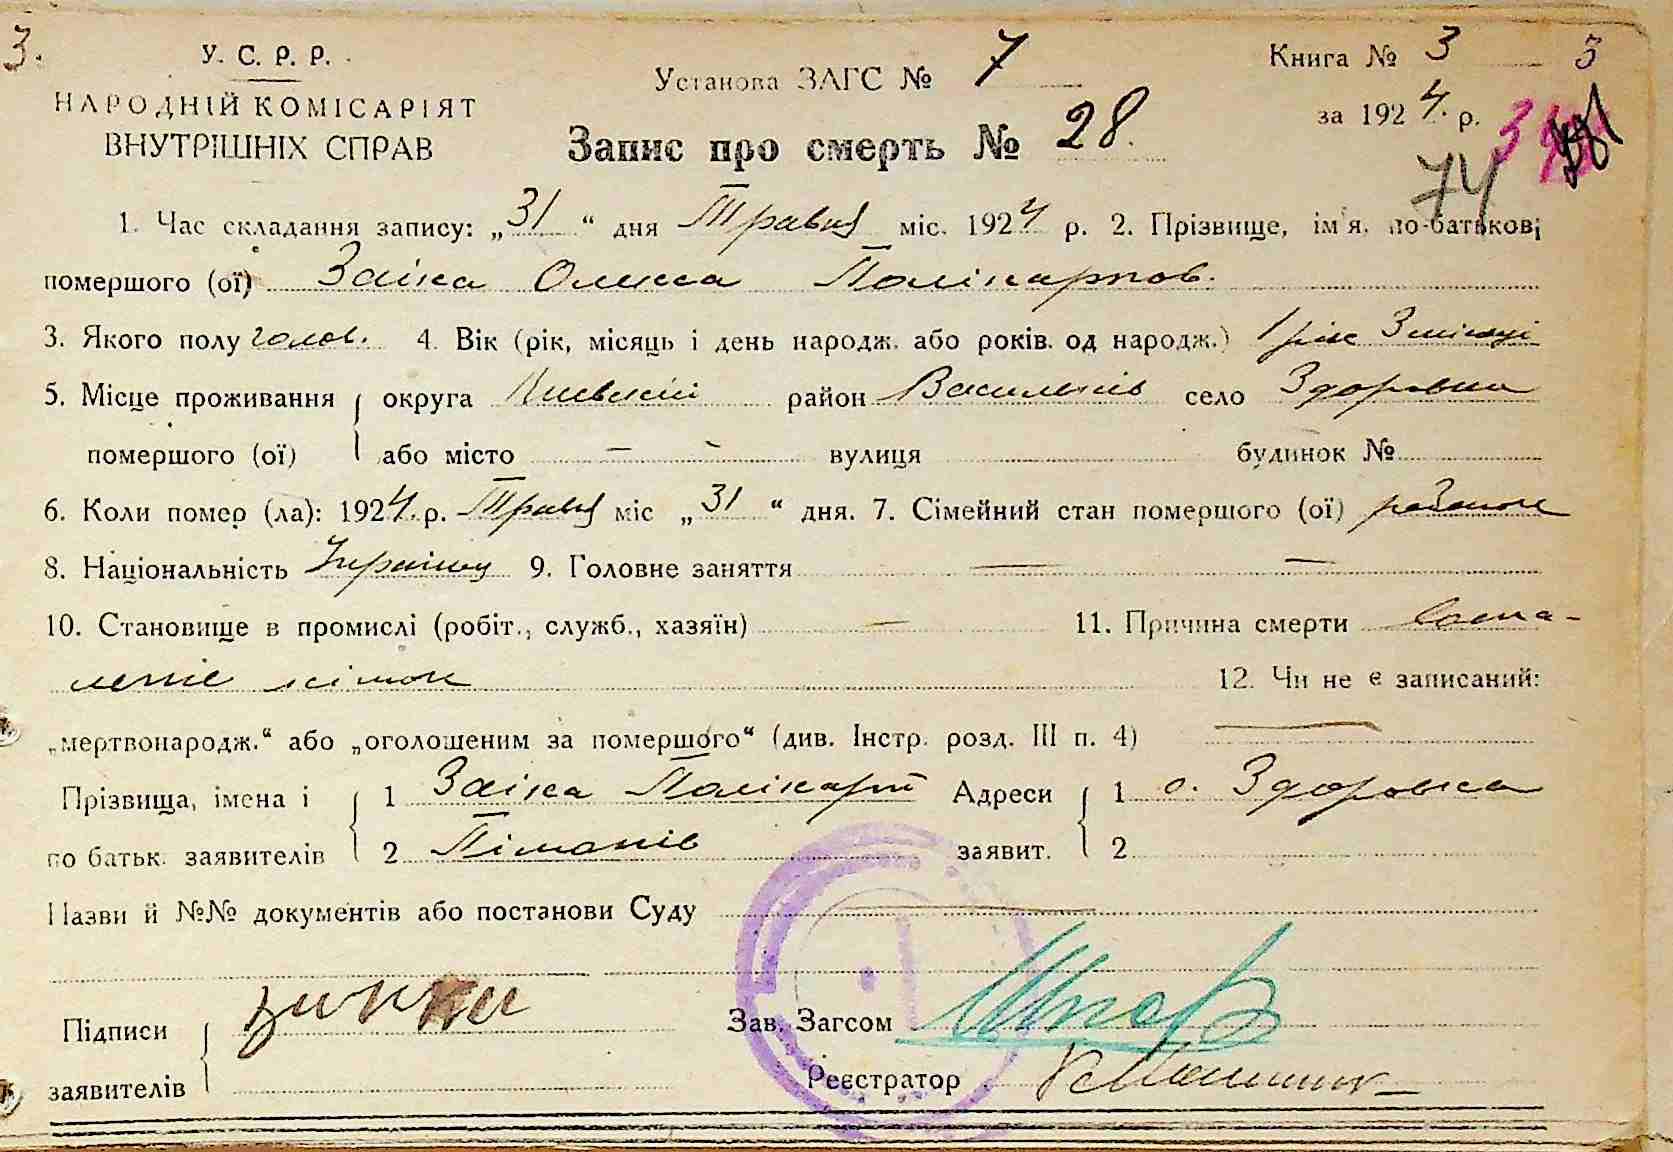 3.
У. С. Р. Р.
НАРОДНІЙ КОМІСАРІЯТ
ВНУТРІШНІХ СПРАВ
Установа ЗАГС № 7
Книга № 3 3
за 1924 р.
74
Запис про смерть № 28.
1. Час складання запису: „31“ дня Травня міс. 1924 р. 2. Прізвище, ім'я, по-батькові
помершого (ої) Заіка Олекса Полікарпов.
3. Якого полу чолов. 4. Вік (рік, місяць і день народж. або років. од народж.) 1 рік 3 місяці
5. Місце проживання помершого (ої) округа Киевский район Васильків село Здоровка
або місто — вулиця будинок №
6. Коли помер (ла): 1924 р. Травня міс „31“ дня. 7. Сімейний стан помершого (ої)
8. Національність 9. Головне заняття — —
10. Становище в промислі (робіт., служб., хазяїн) — 11. Причина смерти Воспа-
леніе 12. Чи не є записаний:
„мертвонародж.“ або „оголошеним за помершого“ (див. Інстр. розд. III п. 4) —
Прізвища, імена і по батьк. заявителів 1 Заіка Полікарп Адреси заявит. 1 с. Здоровка
2 Піманів 2
Назви й №№ документів або постанови Суду —
Підписи заявителів
Зав. Загсом
Реєстратор